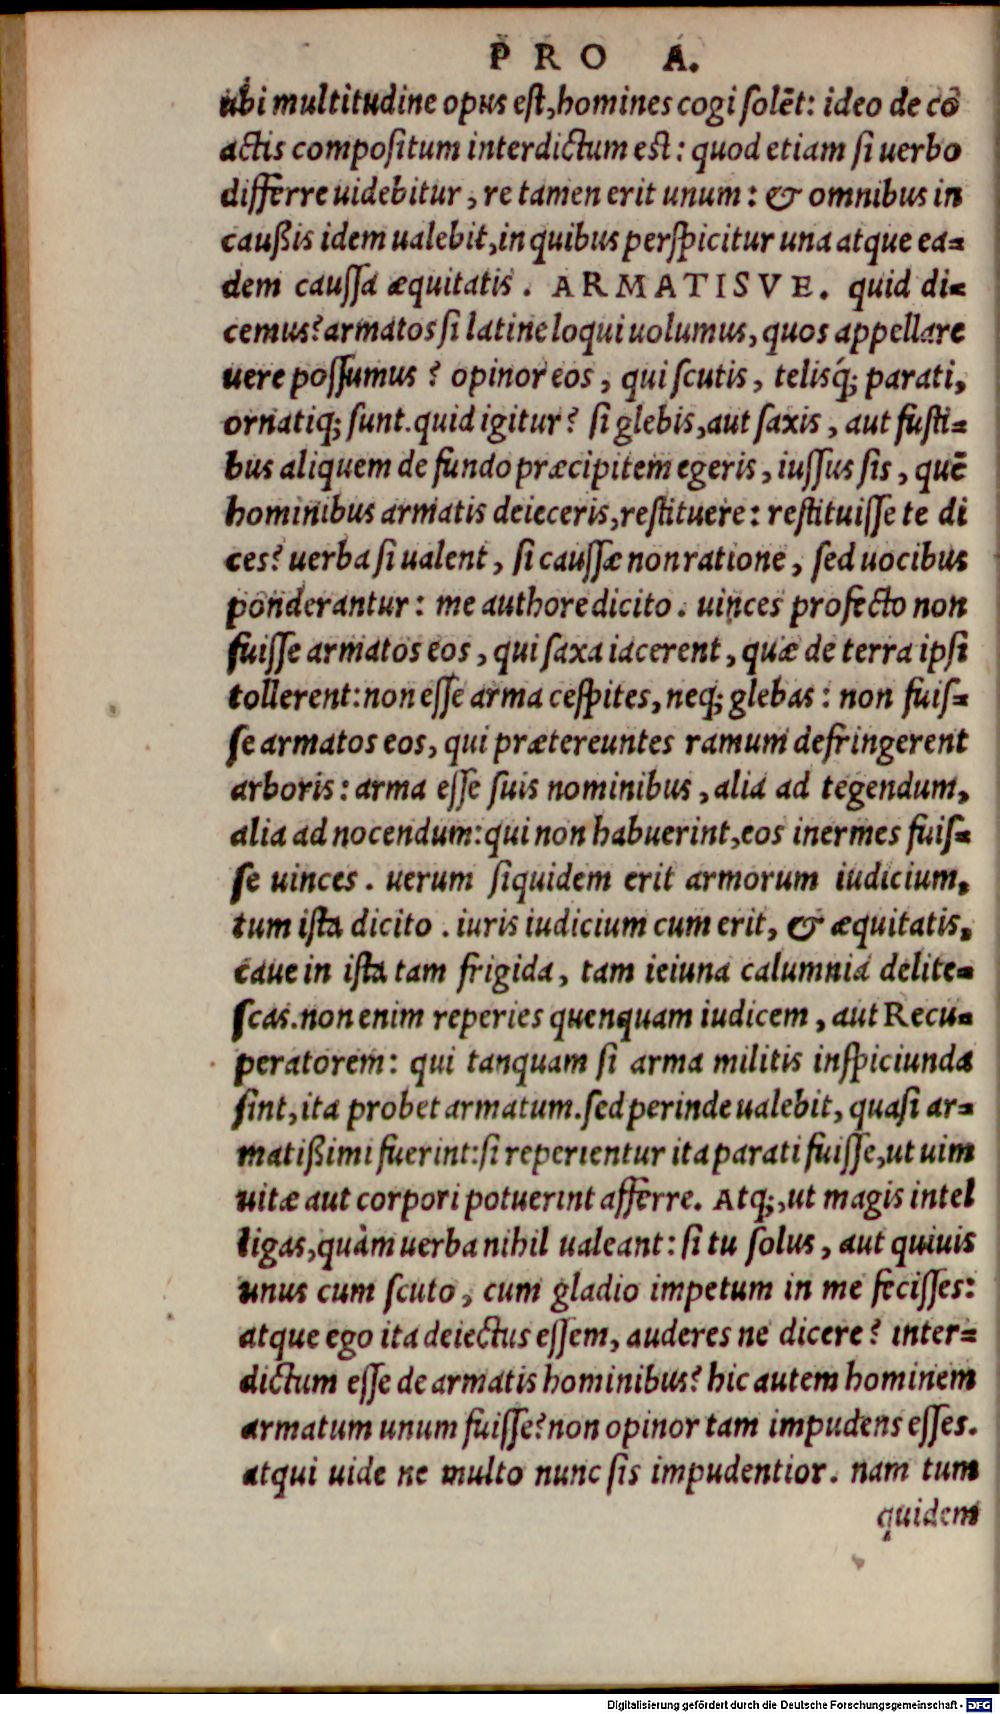 PRO A.
ubi multitudine opus est, homines cogi solēt: ideo de cō
actis compositum interdictum est: quod etiam si uerbo
differre uidebitur, re tamen erit unum: & omnibus in
caußis idem ualebit, in quibus perspicitur una atque ea-
dem caussa æquitatis. ARMATISVE. quid di-
cemus? armatos si latine loqui uolumus, quos appellare
uere possumus? opinor eos, qui scutis, telisq́; parati,
ornatiq; sunt. quid igitur? si glebis, aut saxis, aut fusti-
bus aliquem de fundo præcipitem egeris, iussus sis, quē
hominibus armatis deieceris, restituere: restituisse te di
ces? uerba si ualent, si caussæ non ratione, sed uocibus
ponderantur: me authore dicito. uinces profecto non
fuisse armatos eos, qui saxa iacerent, quæ de terra ipsi
tollerent: non esse arma cespites, neq; glebas: non fuis-
se armatos eos, qui prætereuntes ramum defringerent
arboris: arma esse suis nominibus, alia ad tegendum,
alia ad nocendum: qui non habuerint, eos inermes fuis-
se uinces. uerum siquidem erit armorum iudicium,
tum ista dicito. iuris iudicium cum erit, & æquitatis,
caue in ista tam frigida, tam ieiuna calumnia delite-
scas. non enim reperies quenquam iudicem, aut Recu-
peratorem: qui tanquam si arma militis inspiciunda
sint, ita probet armatum. sed perinde ualebit, quasi ar-
matißimi fuerint: si reperientur ita parati fuisse, ut uim
uitæ aut corpori potuerint afferre. Atq;, ut magis intel
ligas, quàm uerba nihil ualeant: si tu solus, aut quiuis
unus cum scuto, cum gladio impetum in me fecisses:
atque ego ita deiectus essem, auderes ne dicere? inter-
dictum esse de armatis hominibus? hic autem hominem
armatum unum fuisse? non opinor tam impudens esses.
atqui uide ne multo nunc sis impudentior. nam tum
quidem
Digitalisierung gefördert durch die Deutsche Forschungsgemeinschaft - DFG